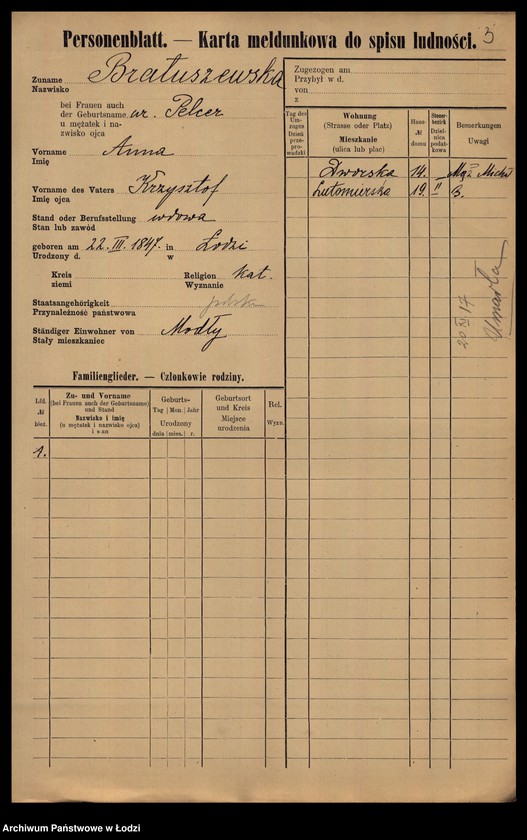 Personenblatt. — Karta meldunkowa do spisu ludności. 3
Zuname Bratuszewska
Nazwisko
bei Frauen auch
der Geburtsname ur. Pelcer
u mężatek i na-
zwisko ojca
Vorname Anna
Imię
Vorname des Vaters Krzysztof
Imię ojca
Stand oder Berufsstellung wdowa
Stan lub zawód
geboren am 22. III. 1847. in Łodzi
Urodzony d. w
Kreis Religion kat.
ziemi Wyznanie
Staatsangehörigkeit polska
Przynależność państwowa
Ständiger Einwohner von Modły
Stały mieszkaniec
Familienglieder. — Członkowie rodziny.
Lfd. № bież.
Zu- und Vorname
(bei Frauen auch der Geburtsname)
und Stand
Nazwisko i imię
(u mężatek i nazwisko ojca)
i stan
Geburts-
Tag Mon. Jahr
Urodzony
dnia mies. r.
Geburtsort
und Kreis
Miejsce
urodzenia
Rel.
Wyzn.
1.
Zugezogen am
Przybył w d.
von
z
Tag des
Um-
zuges
Dzień
prze-
pro-
wadzki
Wohnung
(Strasse oder Platz)
Mieszkanie
(ulica lub plac)
Haus-
№
domu
Steuer-
bezirk
Dziel-
nica
podat-
kowa
Bemerkungen
Uwagi
Dworska 14. Mąż Micha
Lutomierska 19. II B.
20 XI 17
Umarła
Archiwum Państwowe w Łodzi